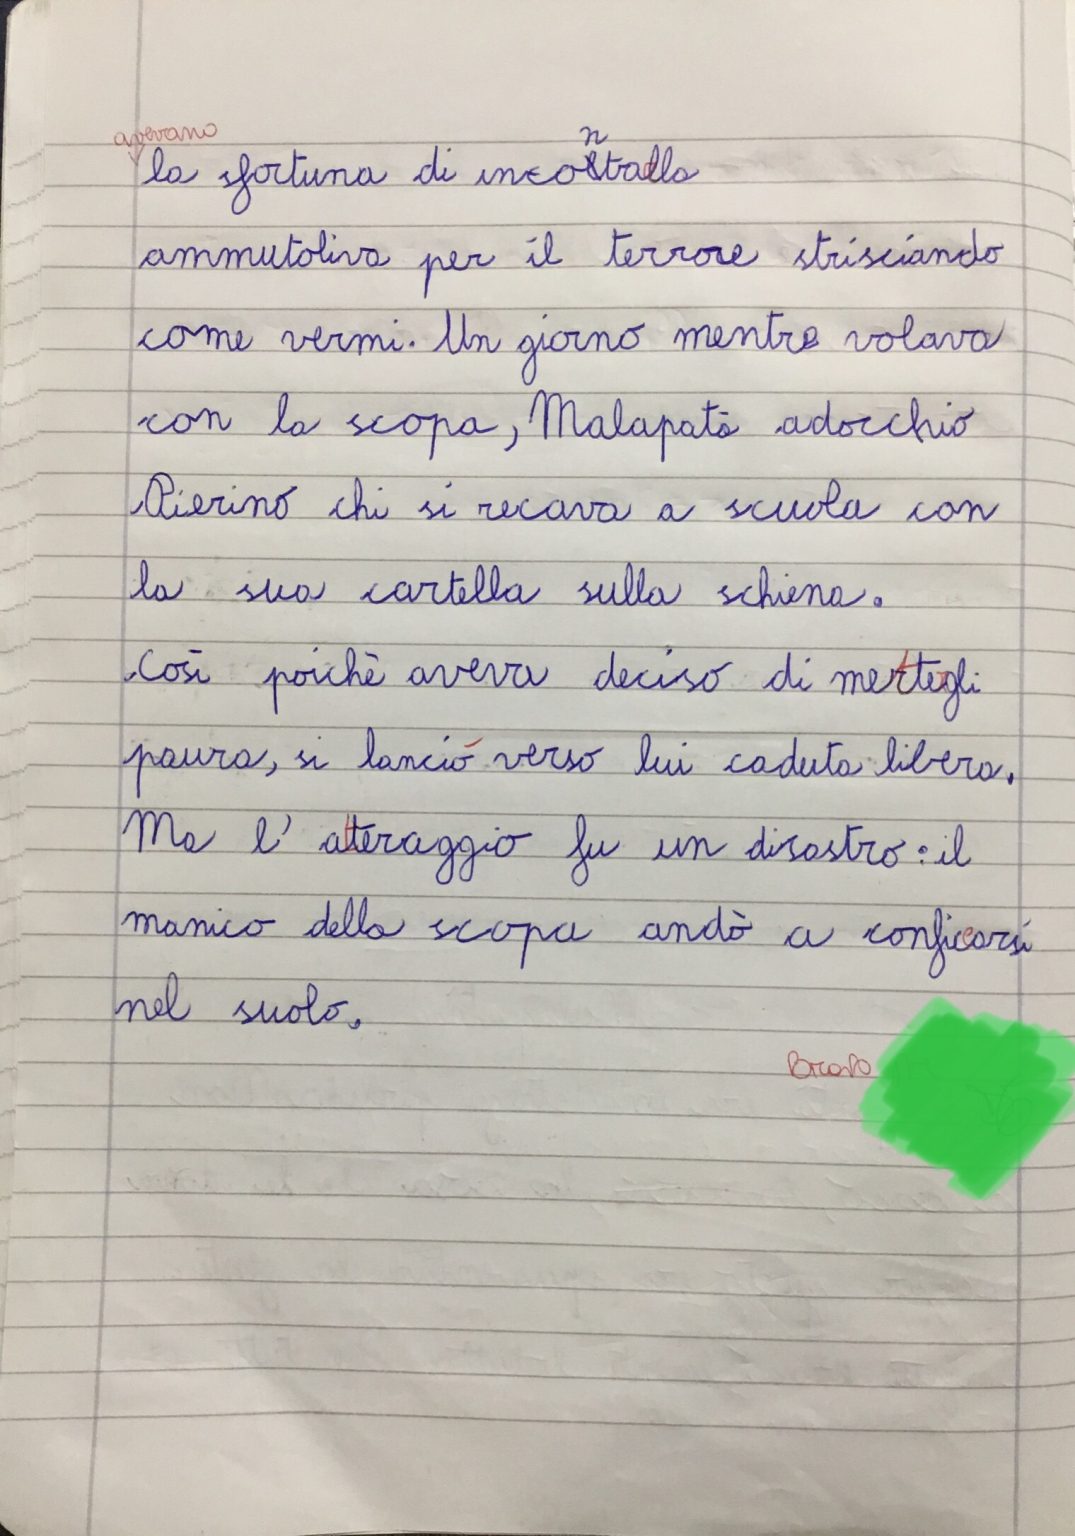 avevano
la sfortuna di incontralla
ammutoliva per il terrore strisciando
come vermi. Un giorno mentre volava
con la scopa, Malapatà adocchiò
Pierino chi si recava a scuola con
la sua cartella sulla schiena.
Così poichè aveva deciso di mettegli
paura, si lanciò verso lui caduta libera.
Ma l' atteraggio fu un disastro: il
manico della scopa andò a conficcarsi
nel suolo.
Bravo